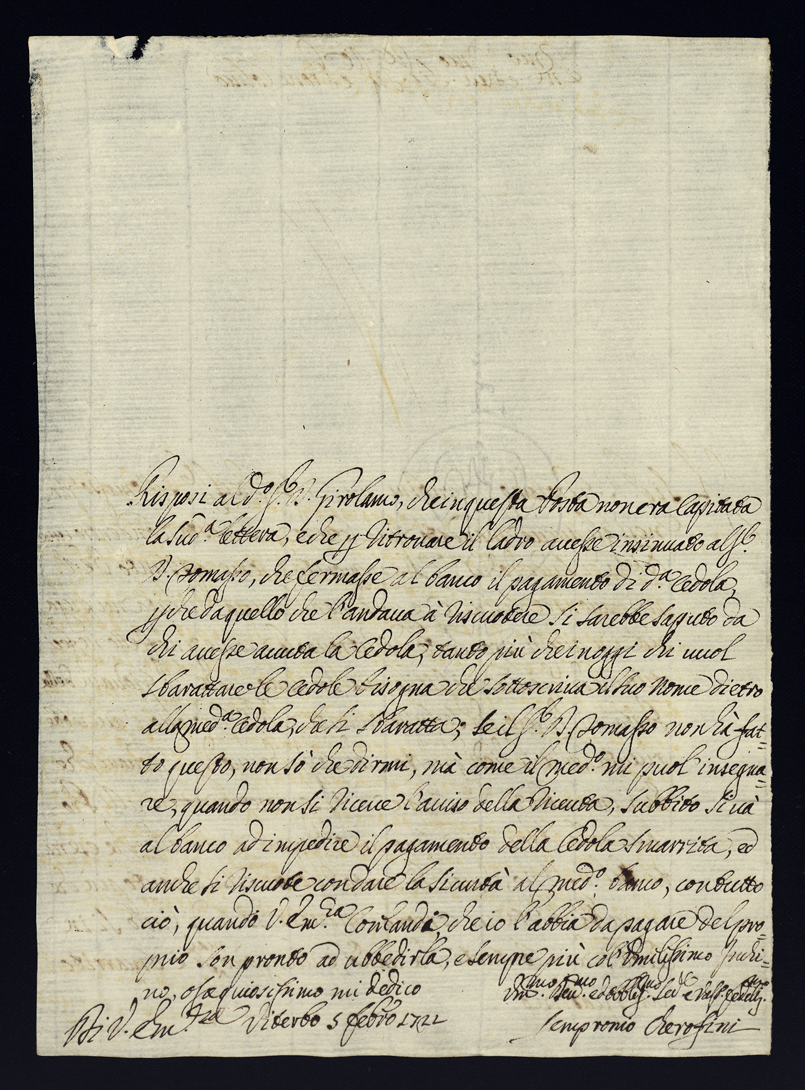 Risposi al d.º S.r D. Girolamo, che in questa Posta non era Capitata
la sud.a lettera, e che p ritrouare il ladro auesse insinuato al S.r
D. Tomasso, che fermasse al banco il pagamento di d.a Cedola,
p che da quello che l'andaua à riscuotere si sarebbe saputo da
chi auesse auuta la Cedola, tanto più che in oggi chi uuol
sbarattare le Cedole bisogna che sottoscriua il suo nome dietro
alla med.a Cedola, che si sbaratta; se il S.r D. Tomasso non hà fat=
to questo, non sò che dirmi, mà come il med.º mi puol insegna=
re, quando non si riceue l'auuiso della riceuta, subbito si uà
al banco ad impedire il pagamento della Cedola smarrita, ed
anche si riscuote con dare la sicurtà al med.º banco, con tutto
ciò, quando V. Em.za Comandi, che io l'abbia da pagare del pro=
prio son pronto ad ubbedirla, e sempre più col Umilissimo Inchi=
no, ossequiosissimo mi dedico
Di V. Em.za Viterbo 5 febro 1721
Um.mo Deu.mo ed obblig.mo Ser.e e Vass.
Sempronio Cherofini